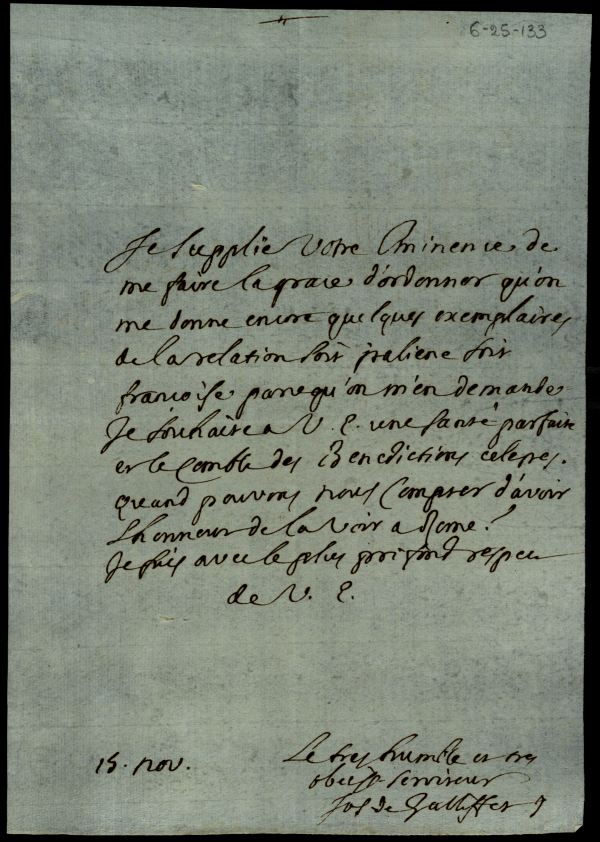 6-25-133
Je supplie Votre Eminence de
me faire la grace d'ordonner qu'on
me donne encore quelques exemplaires
de la relation soit italiene soit
francoise parcequ'on m'en demande
Je souhaite a V. E. une santé parfaite
et le Comble des Benedictions celestes.
quand pouvons nous Compter d'avoir
L'honneur de la voir a Rome?
Je suis avec le plus profond respect
de V. E.
15. nov.
Le tres humble et tres
obeisst serviteur
Jos de Galliffet J